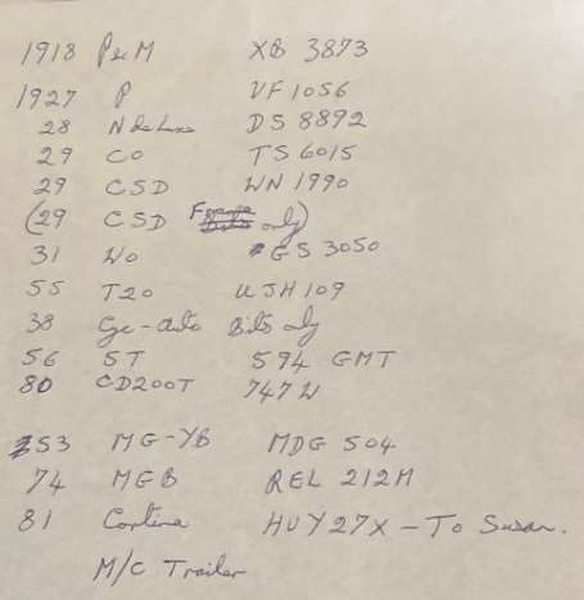 1918 P&M XB 3873
1927 P VF 1056
28 N de Luxe DS 8892
29 CO TS 6015
29 CSD WN 1990
(29 CSD Frame only)
31 WO GS 3050
55 T20 USH 109
38 Cyc-Auto Bits only
56 ST 594 GMT
80 CD200T 747 W
53 MG-YB MDG 504
74 MGB REL 212M
81 Cortina HUY 27X - To Susan.
M/C Trailer